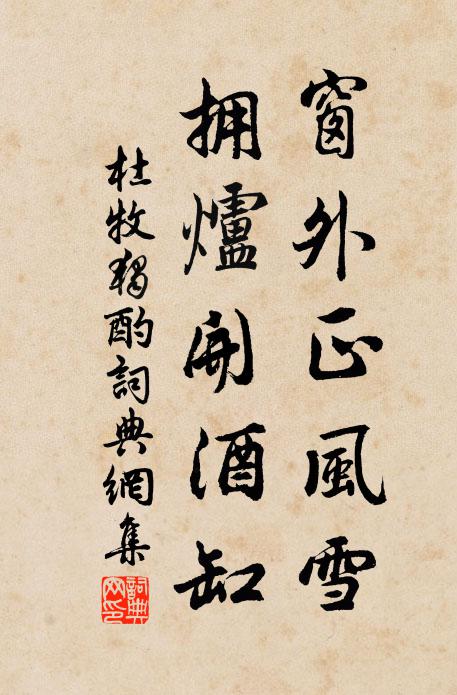 窗外正風雪
拥爐開酒缸
杜牧獨酌詞典網集
詞典網印